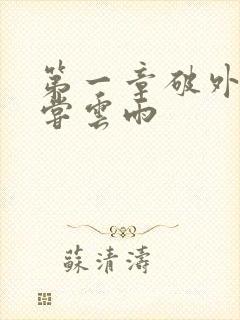 第一章破外
嘗雲雨
蘇清濤